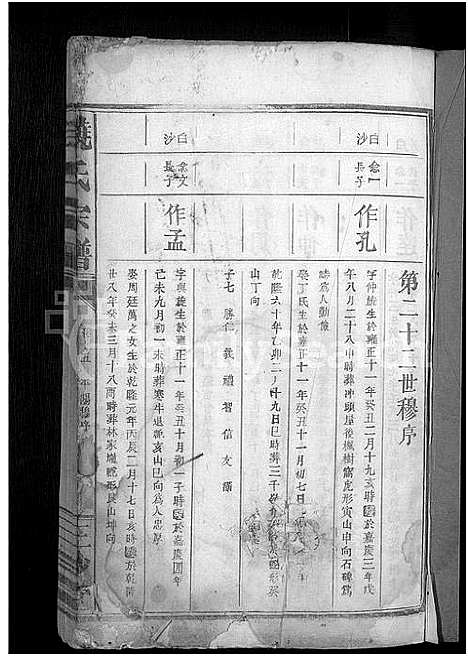 第二十二世穆序
白沙
念一長子
作孔
字仲旋生於雍正十一年癸丑二月十九亥時於嘉慶三年戊
午八月二十八申時葬冲頭屋後楓樹窩虎形寅山申向石碑為
誌為人勤儉
娶丁氏生於雍正十一年癸丑十一月初七
乾隆六十年乙卯二月二十九日巳時葬三千形癸
山丁向
子七 勝仁 義 禮 智 信 友
白沙
念文長子
作孟
字與旋生於雍正十一年癸丑十月初一子時於嘉慶四年
己未九月初一未時葬寒牛退軛亥山巳向為人忠厚
娶周廷萬之女生於乾隆元年丙辰二月十七日亥時於乾隆
廿八年癸未三月十八酉時葬林家形艮山坤向
饒氏宗譜
穆序